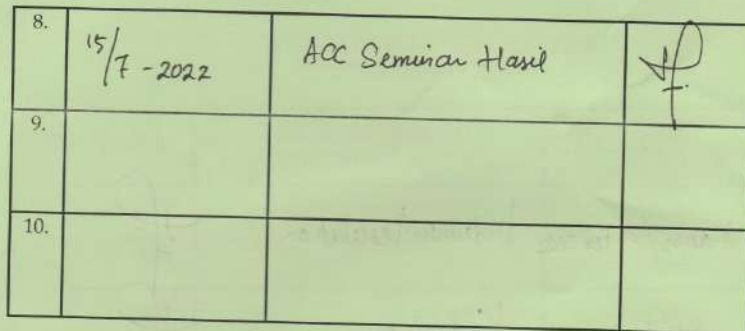 8.
15/7 - 2022
ACC Seminar Hasil
9.
10.